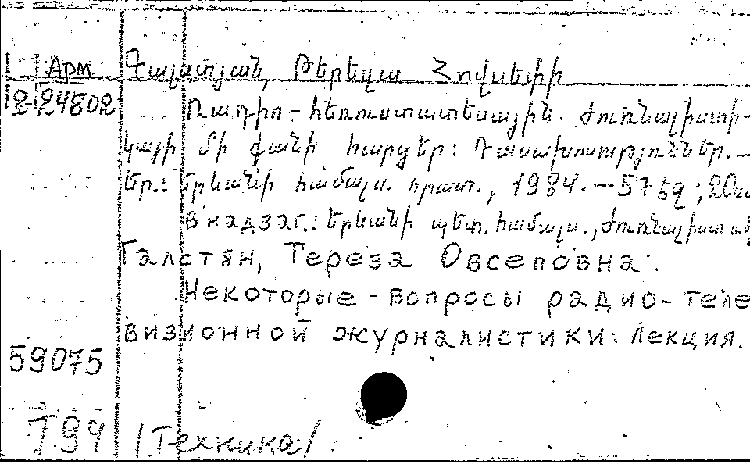 Арм Գալստյան, Թերեզա Հովսեփի
2 24802 Ռադիո-հեռուստատեսային ժուռնալիստի-
կայի մի քանի հարցեր: Դասախոսություններ.—
Եր.: Երևանի համալս. հրատ., 1984.—57 էջ; 20ս
В надзаг.: Երևանի պետ. համալս., ժուռնալիստ
Галстян, Тереза Овсеповна.
Некоторые - вопросы радио- теле
визионной журналистики. Лекция.
59075
794 /Техника/